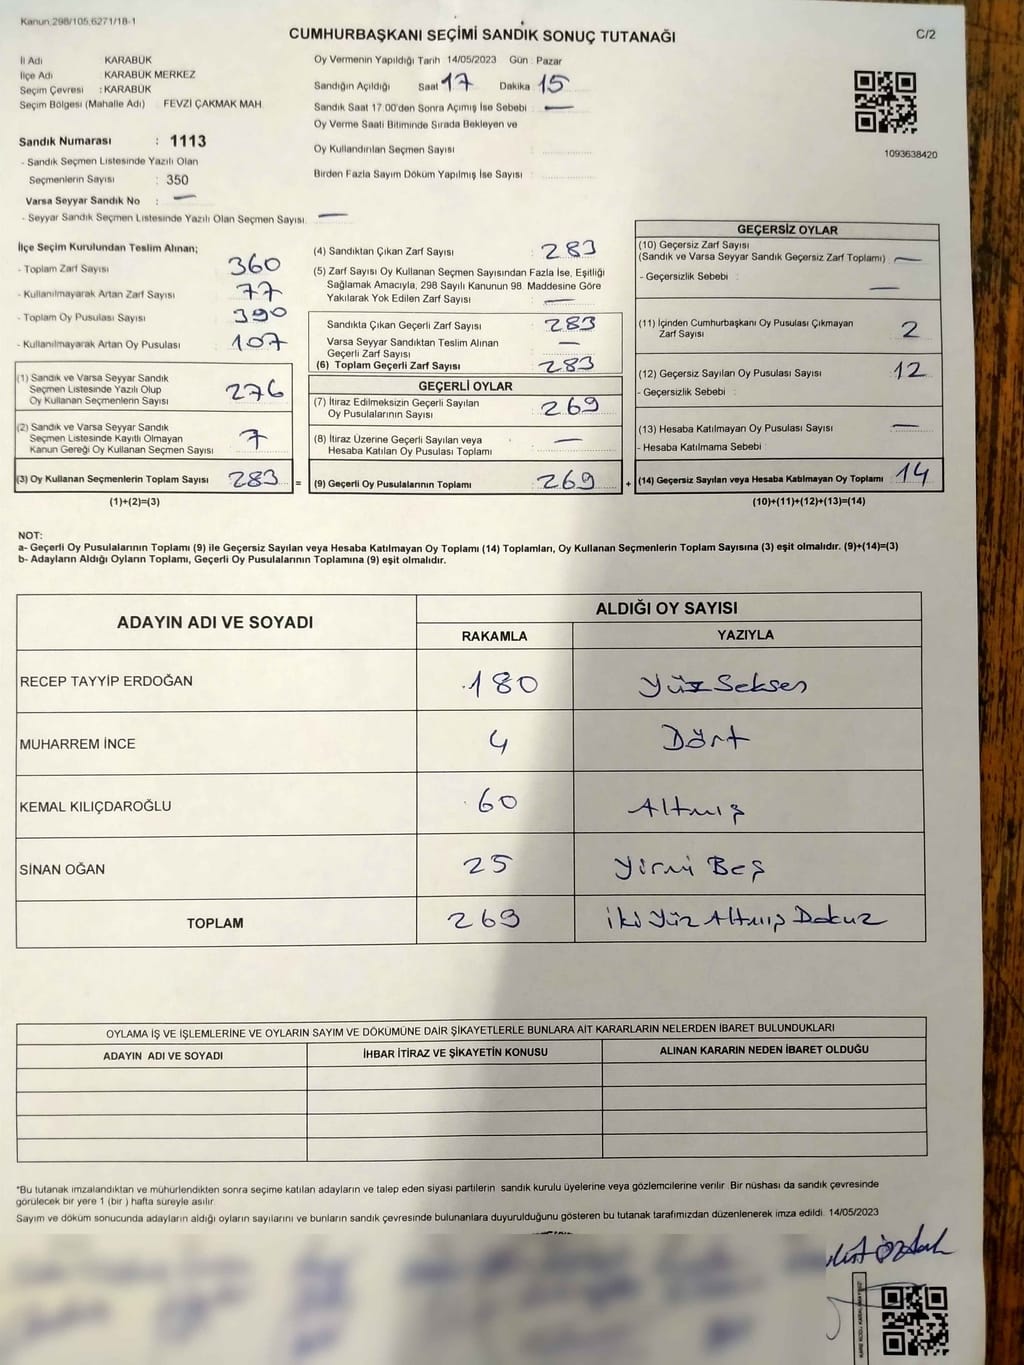 Kanun.298/105,6271/18-1
CUMHURBAŞKANI SEÇİMİ SANDIK SONUÇ TUTANAĞI
C/2
İl Adı KARABÜK
İlçe Adı KARABÜK MERKEZ
Seçim Çevresi : KARABÜK
Seçim Bölgesi (Mahalle Adı) FEVZİ ÇAKMAK MAH
Oy Vermenin Yapıldığı Tarih 14/05/2023 Gün : Pazar
Sandığın Açıldığı Saat 17 Dakika 15
Sandık Saat 17.00'den Sonra Açımış İse Sebebi —
Oy Verme Saati Bitiminde Sırada Bekleyen ve
Oy Kullandırılan Seçmen Sayısı :
Birden Fazla Sayım Döküm Yapılmış İse Sayısı :
1093638420
Sandık Numarası : 1113
- Sandık Seçmen Listesinde Yazılı Olan
Seçmenlerin Sayısı : 350
Varsa Seyyar Sandık No : —
- Seyyar Sandık Seçmen Listesinde Yazılı Olan Seçmen Sayısı —
İlçe Seçim Kurulundan Teslim Alınan;
- Toplam Zarf Sayısı 360
- Kullanılmayarak Artan Zarf Sayısı 77
- Toplam Oy Pusulası Sayısı 390
- Kullanılmayarak Artan Oy Pusulası 107
(1) Sandık ve Varsa Seyyar Sandık
Seçmen Listesinde Yazılı Olup
Oy Kullanan Seçmenlerin Sayısı 276
(2) Sandık ve Varsa Seyyar Sandık
Seçmen Listesinde Kayıtlı Olmayan
Kanun Gereği Oy Kullanan Seçmen Sayısı 7
(3) Oy Kullanan Seçmenlerin Toplam Sayısı 283 =
(1)+(2)=(3)
(4) Sandıktan Çıkan Zarf Sayısı 283
(5) Zarf Sayısı Oy Kullanan Seçmen Sayısından Fazla İse, Eşitliği
Sağlamak Amacıyla, 298 Sayılı Kanunun 98. Maddesine Göre
Yakılarak Yok Edilen Zarf Sayısı —
Sandıkta Çıkan Geçerli Zarf Sayısı 283
Varsa Seyyar Sandıktan Teslim Alınan
Geçerli Zarf Sayısı —
(6) Toplam Geçerli Zarf Sayısı 283
GEÇERLİ OYLAR
(7) İtiraz Edilmeksizin Geçerli Sayılan
Oy Pusulalarının Sayısı 269
(8) İtiraz Üzerine Geçerli Sayılan veya
Hesaba Katılan Oy Pusulası Toplamı —
(9) Geçerli Oy Pusulalarının Toplamı 269 +
GEÇERSİZ OYLAR
(10) Geçersiz Zarf Sayısı
(Sandık ve Varsa Seyyar Sandık Geçersiz Zarf Toplamı) —
- Geçersizlik Sebebi : —
(11) İçinden Cumhurbaşkanı Oy Pusulası Çıkmayan
Zarf Sayısı 2
(12) Geçersiz Sayılan Oy Pusulası Sayısı 12
- Geçersizlik Sebebi :
(13) Hesaba Katılmayan Oy Pusulası Sayısı —
- Hesaba Katılmama Sebebi :
(14) Geçersiz Sayılan veya Hesaba Katılmayan Oy Toplamı 14
(10)+(11)+(12)+(13)=(14)
NOT:
a- Geçerli Oy Pusulalarının Toplamı (9) ile Geçersiz Sayılan veya Hesaba Katılmayan Oy Toplamı (14) Toplamları, Oy Kullanan Seçmenlerin Toplam Sayısına (3) eşit olmalıdır. (9)+(14)=(3)
b- Adayların Aldığı Oyların Toplamı, Geçerli Oy Pusulalarının Toplamına (9) eşit olmalıdır.
ADAYIN ADI VE SOYADI
ALDIĞI OY SAYISI
RAKAMLA YAZIYLA
RECEP TAYYİP ERDOĞAN 180 Yüz Seksen
MUHARREM İNCE 4 Dört
KEMAL KILIÇDAROĞLU 60 Altmış
SİNAN OĞAN 25 Yirmi Beş
TOPLAM 269 İki Yüz Altmış Dokuz
OYLAMA İŞ VE İŞLEMLERİNE VE OYLARIN SAYIM VE DÖKÜMÜNE DAİR ŞİKAYETLERLE BUNLARA AİT KARARLARIN NELERDEN İBARET BULUNDUKLARI
ADAYIN ADI VE SOYADI İHBAR İTİRAZ VE ŞİKAYETİN KONUSU ALINAN KARARIN NEDEN İBARET OLDUĞU
*Bu tutanak imzalandıktan ve mühürlendikten sonra seçime katılan adayların ve talep eden siyasi partilerin sandık kurulu üyelerine veya gözlemcilerine verilir. Bir nüshası da sandık çevresinde
görülecek bir yere 1 (bir ) hafta süreyle asılır.
Sayım ve döküm sonucunda adayların aldığı oyların sayılarını ve bunların sandık çevresinde bulunanlara duyurulduğunu gösteren bu tutanak tarafımızdan düzenlenerek imza edildi. 14/05/2023